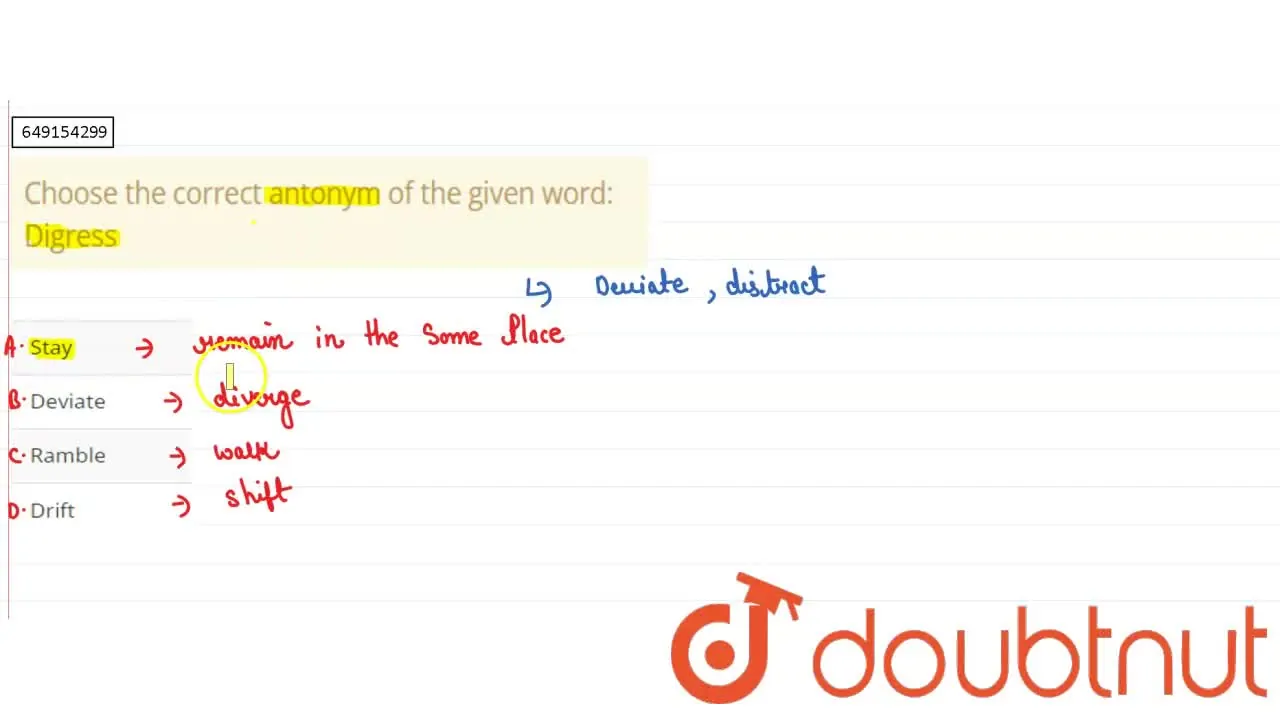 649154299
Choose the correct antonym of the given word:
Digress
↳ Deviate, distract
A. Stay → remain in the Same Place
B. Deviate → diverge
C. Ramble → walk
D. Drift → shift
doubtnut